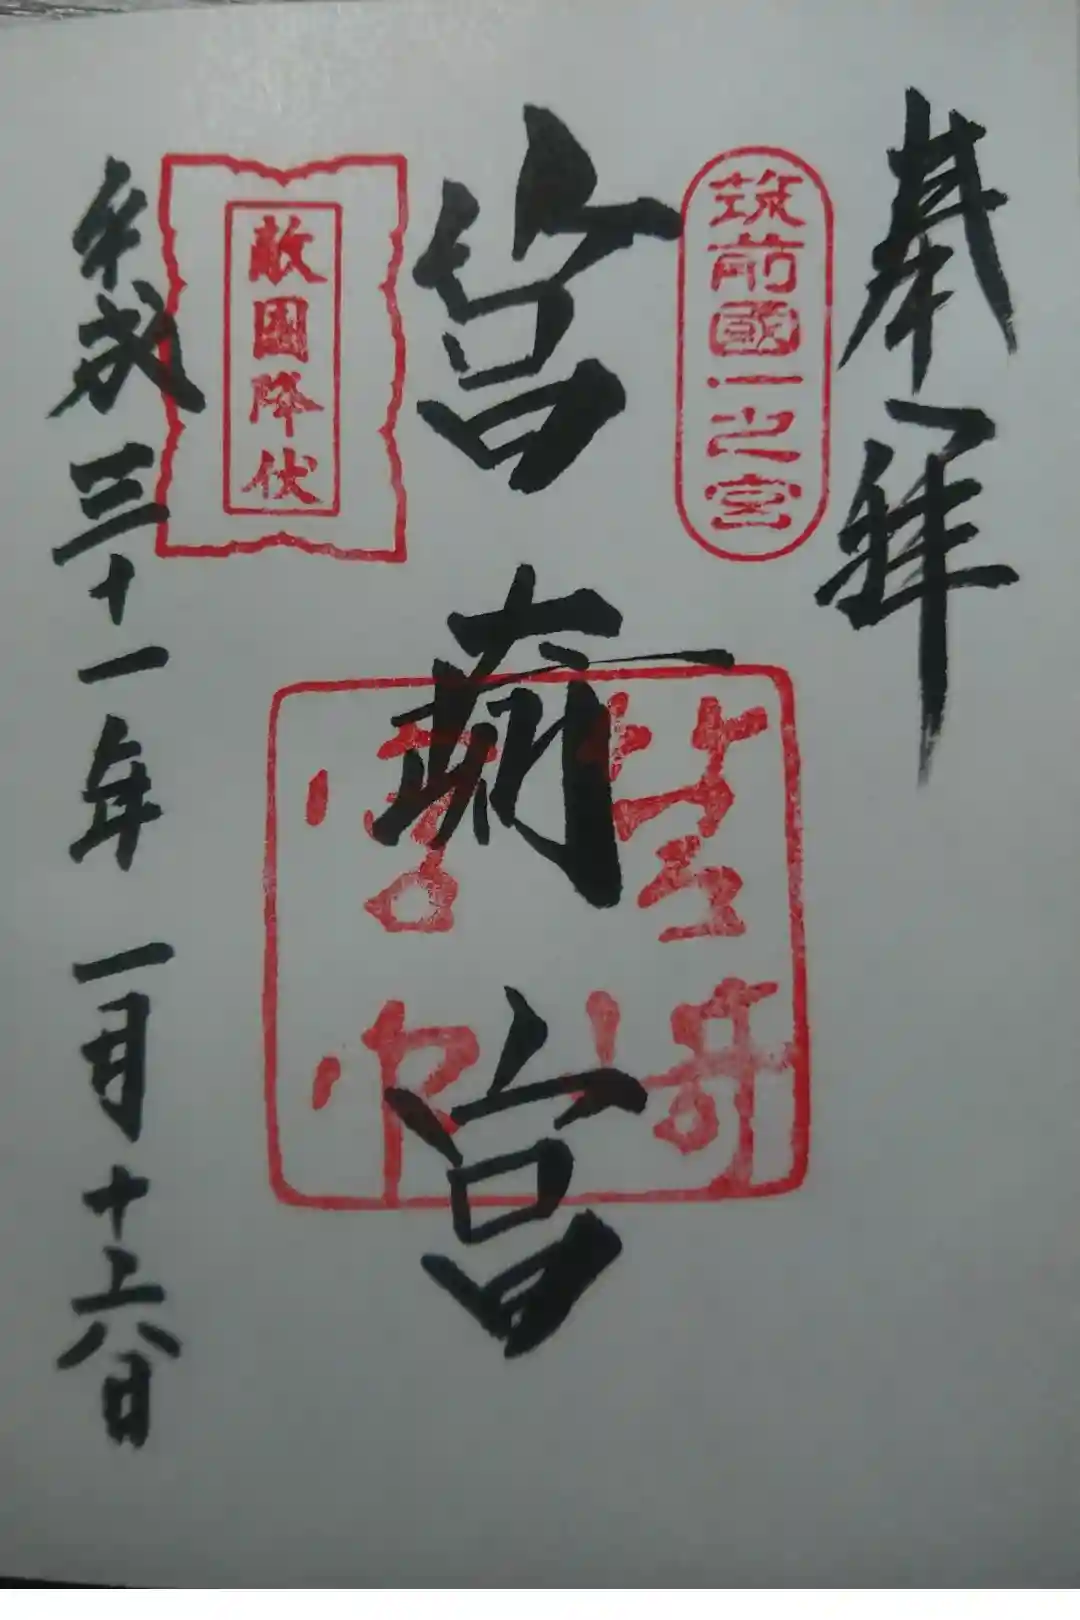 奉拝
筑前國一之宮
筥崎宮
筥崎宮印
敵國降伏
平成三十一年一月十六日